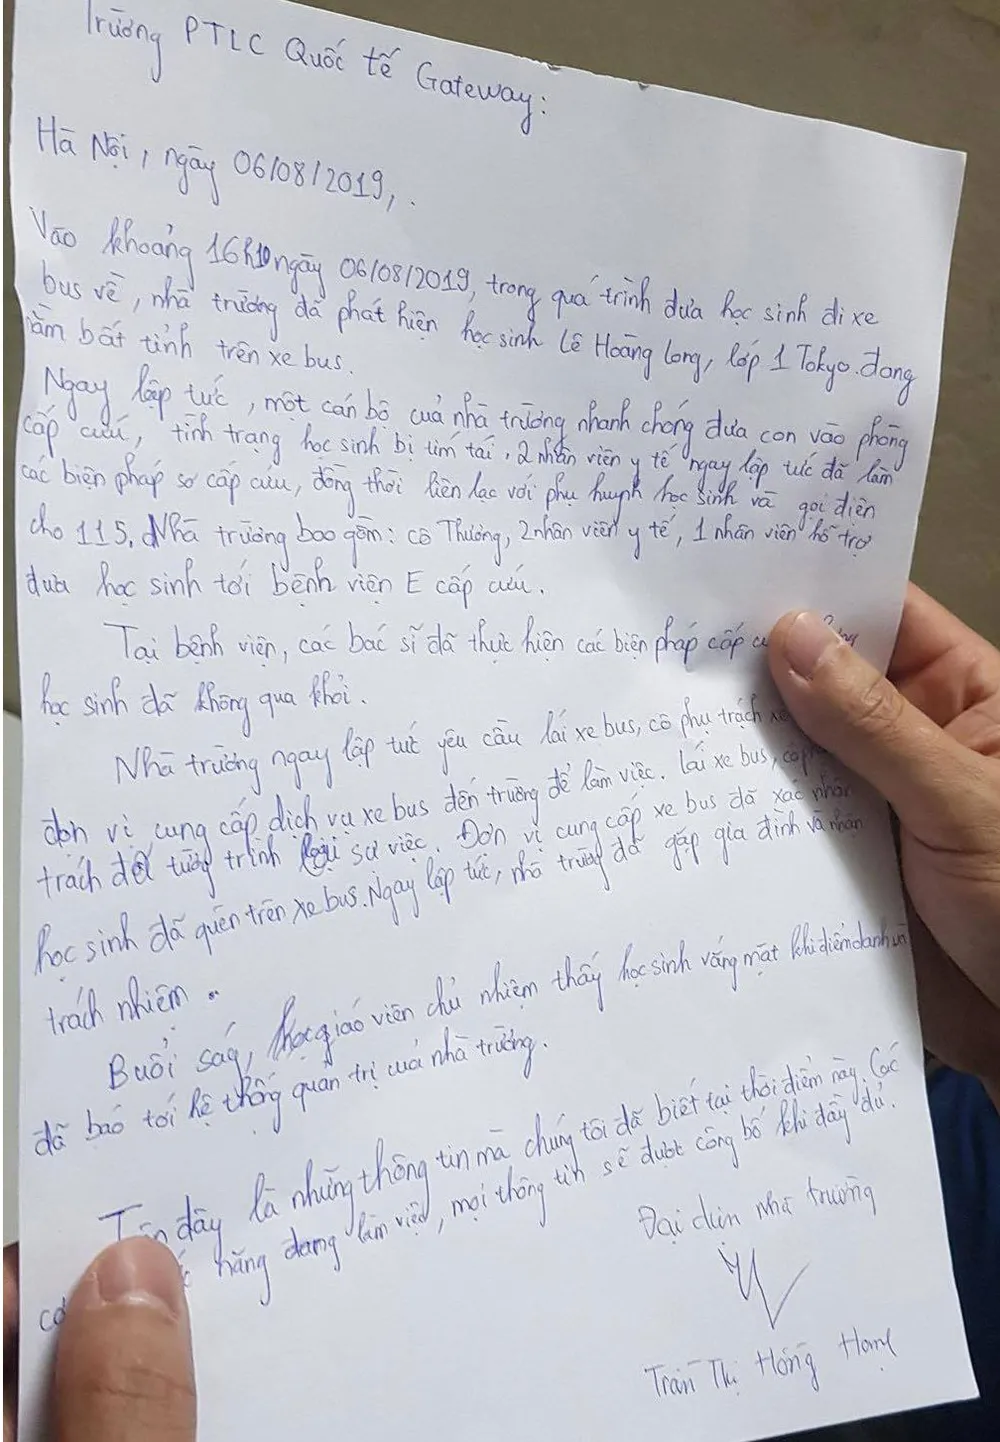 Trường PTLC Quốc tế Gateway:
Hà Nội, ngày 06/08/2019,.
Vào khoảng 16h10 ngày 06/08/2019, trong quá trình đưa học sinh đi xe
bus về, nhà trường đã phát hiện học sinh Lê Hoàng Long, lớp 1 Tokyo. đang
nằm bất tỉnh trên xe bus.
Ngay lập tức, một cán bộ của nhà trường nhanh chóng đưa con vào phòng
cấp cứu, tình trạng học sinh bị tím tái, 2 nhân viên y tế ngay lập tức đã làm
các biện pháp sơ cấp cứu, đồng thời liên lạc với phụ huynh học sinh và gọi điện
cho 115. Nhà trường bao gồm: cô Thương, 2 nhân viên y tế, 1 nhân viên hỗ trợ
đưa học sinh tới bệnh viện E cấp cứu.
Tại bệnh viện, các bác sĩ đã thực hiện các biện pháp cấp
học sinh đã không qua khỏi.
Nhà trường ngay lập tức yêu cầu lái xe bus, cô phụ trách xe
đơn vị cung cấp dịch vụ xe bus đến trường để làm việc. Lái xe bus, cô
trách để tường trình lại sự việc. Đơn vị cung cấp xe bus đã xác nhận
học sinh đã quên trên xe bus. Ngay lập tức, nhà trường đã gặp gia đình và nhận
trách nhiệm.
Buổi sáng, giáo viên chủ nhiệm thấy học sinh vắng mặt khi điểm danh và
đã báo tới hệ thống quản trị của nhà trường.
Trên đây là những thông tin mà chúng tôi đã biết tại thời điểm này. Các
năng đang làm việc, mọi thông tin sẽ được công bố khi đầy đủ.
Đại diện nhà trường
Trần Thị Hồng Hạnh